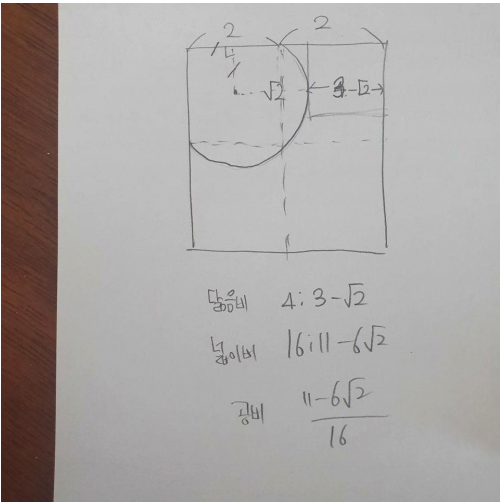 2 2
1
1
√2 3-√2
닮음비 4:3-√2
넓이비 16:11-6√2
공비 11-6√2
16